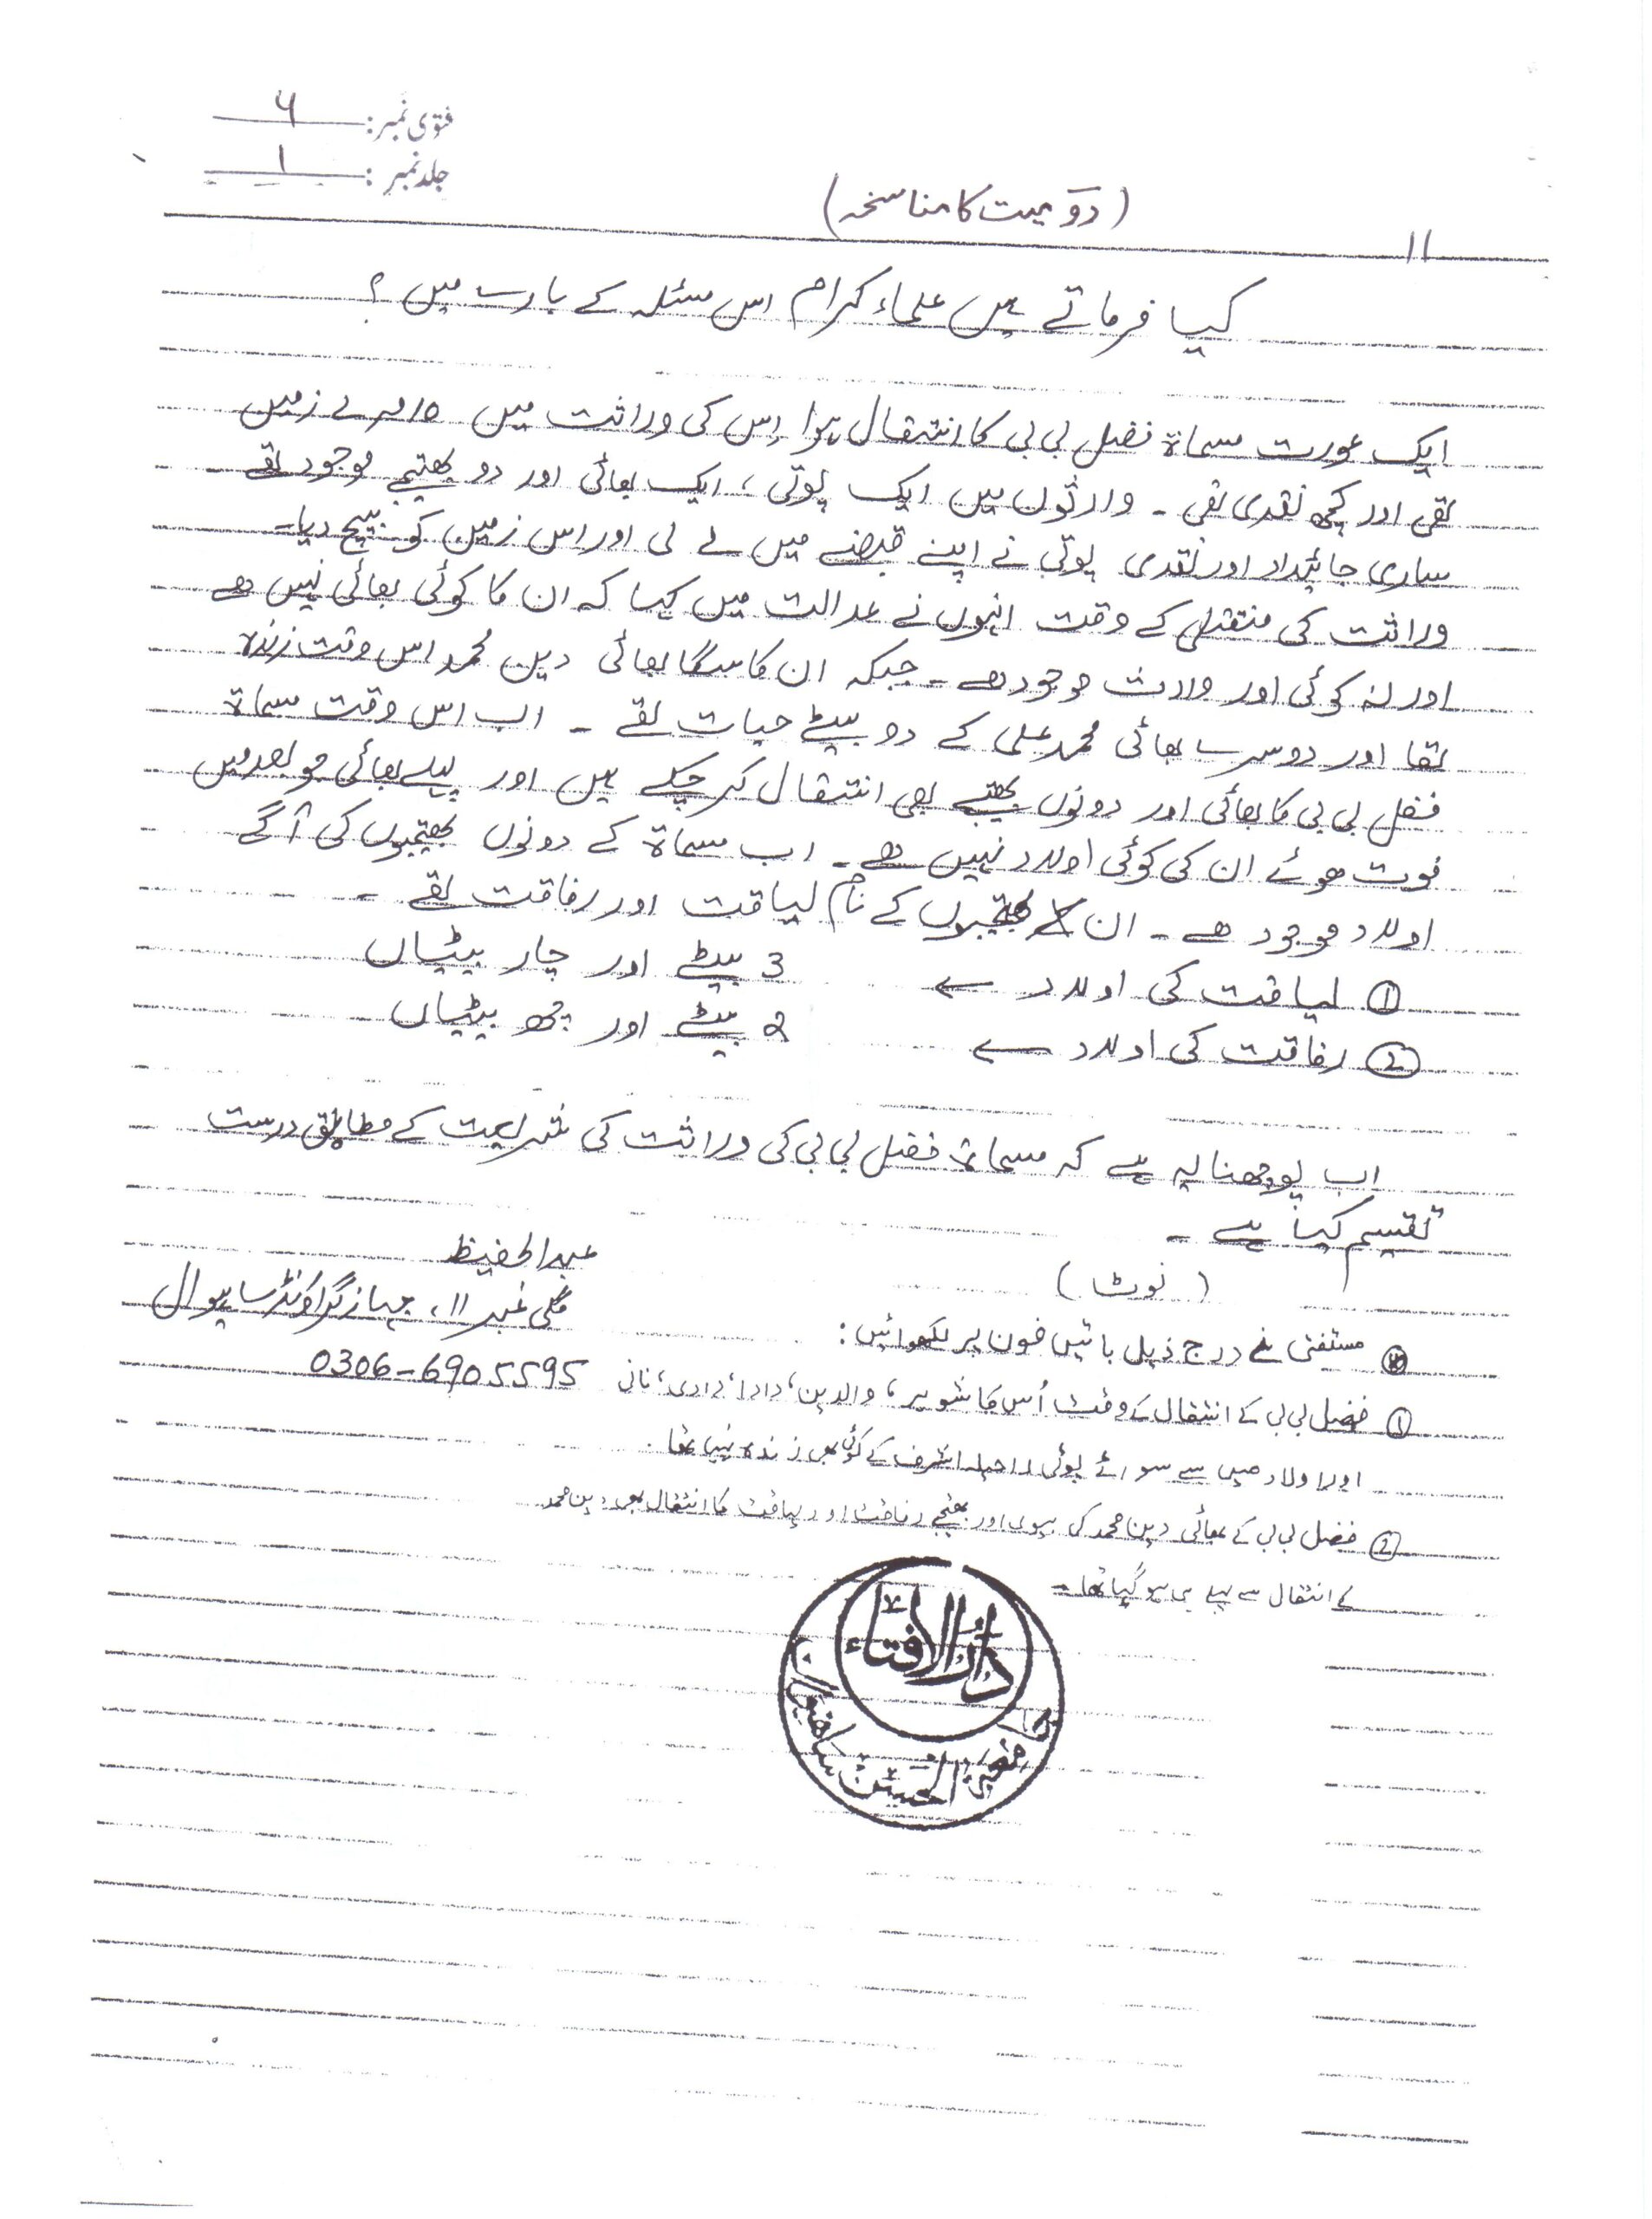 فتوی نمبر: ۶
جلد نمبر: ۱
(دو میت کا مناسخہ)
11
کیا فرماتے ہیں علماء کرام اس مسئلہ کے بارے میں ؟
ایک عورت مسماۃ فضل بی بی کا انتقال ہوا اس کی وراثت میں مرلے زمین
تھی اور کچھ نقدی تھی ۔ وارثوں میں ایک پوتی ، ایک بھائی اور دو بھتیجے موجود تھے ۔
ساری جائیداد اور نقدی پوتی نے اپنے قبضے میں لے لی اور اس زمین کو بیچ دیا ۔
وراثت کی منتقلی کے وقت انہوں نے عدالت میں کہا کہ ان کا کوئی بھائی نہیں ھے
اور نہ کوئی اور وارث موجود ھے ۔ جبکہ ان کا سگا بھائی دین محمد اس وقت زندہ
تھا اور دوسرے بھائی محمد علی کے دو بیٹے حیات تھے ۔ اب اس وقت مسماۃ
فضل بی بی کا بھائی اور دونوں بھتیجے بھی انتقال کر چکے ہیں اور پہلے بھائی جو بعد میں
فوت ھوئے ان کی کوئی اولاد نہیں ھے ۔ اب مسماۃ کے دونوں بھتیجوں کی آگے
اولاد موجود ھے ۔ ان بھتیجوں کے نام لیاقت اور رفاقت تھے ۔
① لیاقت کی اولاد ← 3 بیٹے اور چار بیٹیاں
② رفاقت کی اولاد ← 2 بیٹے اور چھ بیٹیاں
اب پوچھنا یہ ہے کہ مسماۃ فضل بی بی کی وراثت کی شریعت کے مطابق درست
تقسیم کیا ہے ۔
عبدالحفیظ
گلی نمبر 11، جہاز گراؤنڈ ساہیوال
0306-6905595
(نوٹ)
مستفتی نے درج ذیل باتیں فون پر لکھوائیں :
① فضل بی بی کے انتقال کے وقت اُس کا شوہر ، والدین ، دادا ، دادی ، نانی
اور اولاد میں سے سوائے پوتی راحیلہ اشرف کے کوئی بھی زندہ نہیں تھا ۔
② فضل بی بی کے بھائی دین محمد کی بیوی اور بھتیجے رفاقت اور لیاقت کا انتقال بھی دین محمد
کے انتقال سے پہلے ہی ہو گیا تھا ۔
دارالافتاء